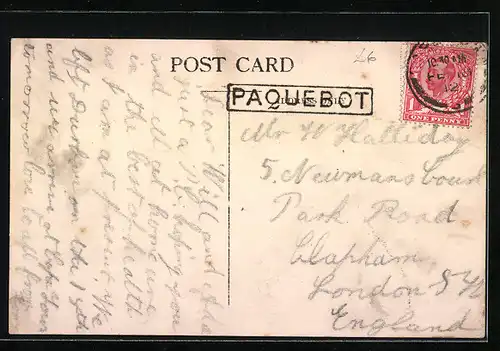 POST CARD
£6
PAQUEBOT
ADDRESS ONLY
10.40 AM
FE
12
ONE PENNY
Dear Will and Ada
Just a P.C. hoping you
and all at home are
in the best of health
as I am at present. We
left Durban on the
and we arrive at Cape Town
tomorrow love to all from
Mr W Halliday
5. Newmans
Park Road
Clapham
London S W
England